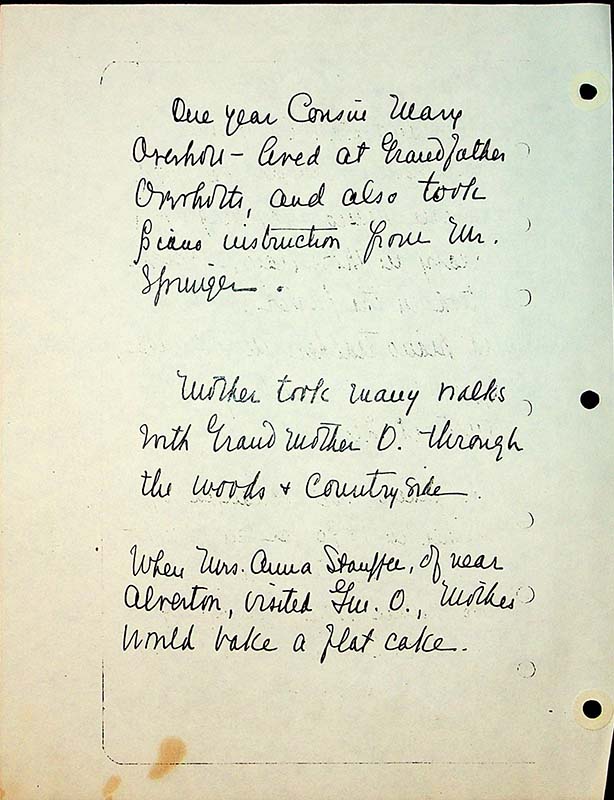 One year Cousin Mary
Overholt - lived at Grandfather
Overholts, and also took
piano instruction from Mr.
Springer.
Mother took many walks
with Grandmother O. through
the woods & Countryside
When Mrs. Anna Stauffer, of near
Alverton, visited Gm. O., Mother
would bake a flat cake.